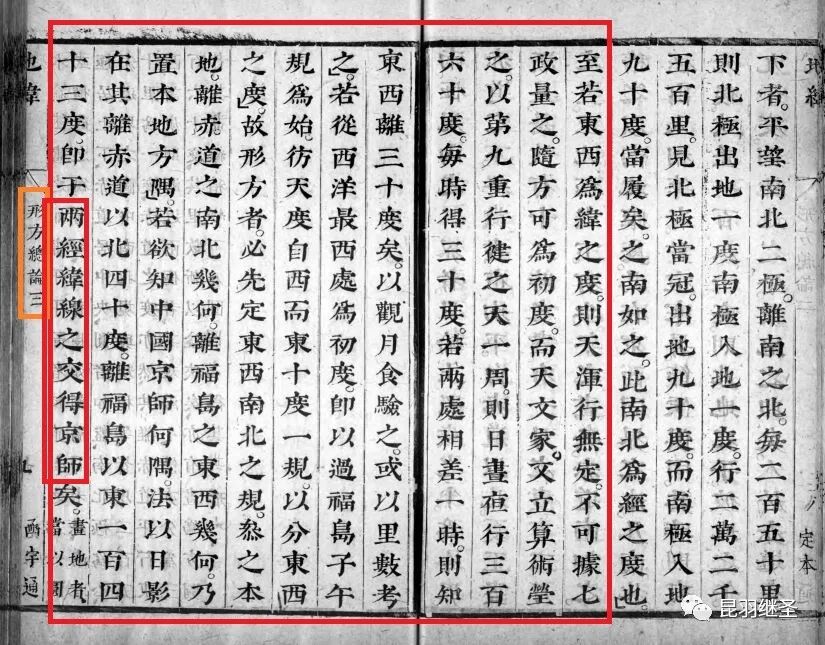 定本
下者。平望南北二極。離南之北。每二百五十里
則北極出地一度南極入地一度。行二萬二千
五百里。見北極當冠。出地九十度。而南極入地
九十度。當履矣。之南如之。此南北爲經之度也」
至若東西爲緯之度。則天渾行無定。不可據七
政量之。隨方可爲初度。而天文家。文立算術瑩
之。以第九重行健之天一周。則日晝夜行三百
六十度。每時得三十度。若兩處相差一時。則知
東西離三十度矣。以觀月食驗之。或以里數考
之。若從西洋最西處爲初度。即以過福島子午
規爲始。彷天度自西而東十度一規。以分東西
之度」故形方者必先定東西南北之規。叅之本
地。離赤道之南北幾何。離福島之東西幾何。乃
置本地方隅」若欲知中國京師何隅。法以日影
在其離赤道以北四十度。離福島以東一百四
十三度。即于兩經緯線之交得京師矣。畫地者
當以圓
地緯
形方總論三
函宇通
昆羽继圣